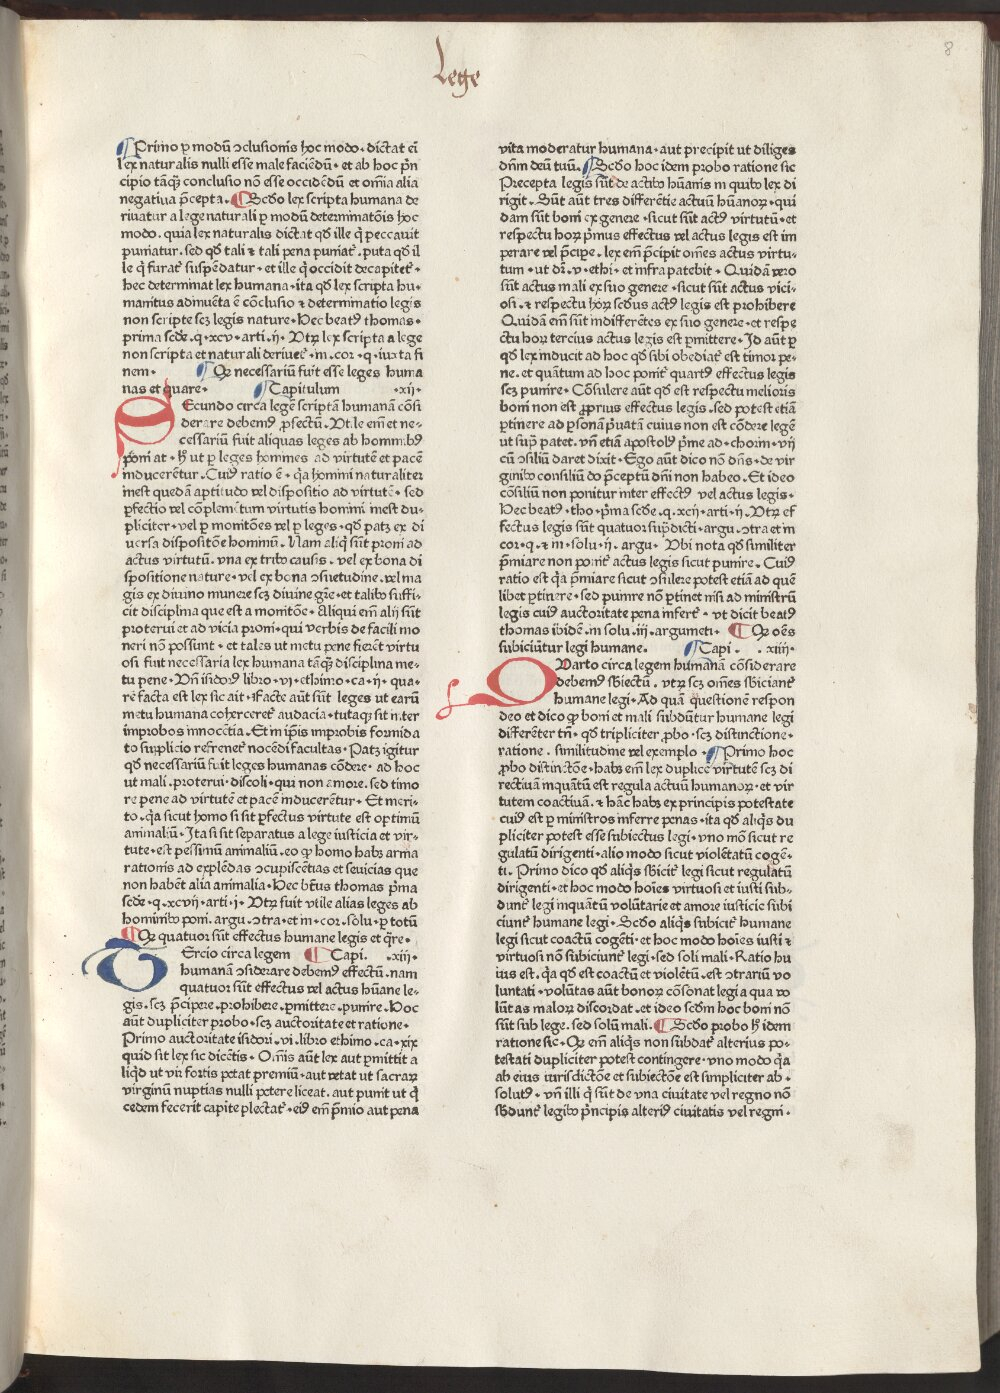 lege
8
¶Primo ꝑ modū ɔclusionis hoc modo · dictat eī
lex naturalis nulli esse male faciēdū · et ab hoc pͥn
cipio tāqꝫ conclusio nō esse occidēdū et oīa alia
negatiua p̄cepta · ¶Scd̄o lex scripta humana de
riuatur a lege naturali ꝑ modū determinatōis hoc
modo. quia lex naturalis dictat qd̄ ille q̄ peccauit
puniatur. sed qd̄ tali ⁊ tali pena puniat᷑. puta qd̄ il
le q̄ furat᷑ suspēdatur · et ille q̄ occidit decapitet᷑ ·
hec determinat lex humana · ita qd̄ lex scripta hu-
manitus adinuēta ē cōclusio ⁊ determinatio legis
non scripte scꝫ legis nature · Hec beatꝰ thomas ·
prima scd̄e. q · xcv · arti · ij · Vtꝝ lex scripta a lege
non scripta et naturali deriuet᷑ · in · cor · q · iuxta fi
nem · ¶Qꝙ necessariū fuit esse leges huma
nas et quare · ¶Capitulum · xij ·
SEcundo circa legē scriptā humanā cōsi
derare debemꝰ ꝓfectū. Vt.le em̄ et ne-
cessariū fuit aliquas leges ab hominibꝰ
p̄oni at · h̄ ut ꝑ leges homines ad virtutē et pacē
inducerētur. Cuiꝰ ratio ē · q̄a homini naturaliter
inest quedā aptitudo vel dispositio ad virtutē · sed
ꝑfectio vel cōplemētum virtutis homini inest du-
pliciter · vel ꝑ monitōes vel ꝑ leges · qd̄ patꝫ ex di
uersa dispositōe hominū. Nam aliq̄ sūt proni ad
actus virtutū. vna ex tribꝰ causis. vel ex bona di
spositione nature · vel ex bona ɔsuetudine. vel ma
gis ex diuino munere scꝫ diuine gr̄e · et talibꝰ suffi-
cit disciplina que est a monitōe · Aliqui em̄ alij sūt
proterui et ad vicia proni · qui verbis de facili mo
neri nō possunt · et tales ut metu pene fierēt virtu
osi. fuit necessaria lex humana tāqꝫ disciplina me-
tu pene · Vn̄ isidorꝰ libro · vi · ethimo · ca · ij · qua-
re facta est lex sic ait · Facte aūt sūt leges ut earū
metu humana coherceret᷑ audacia · tutaqꝫ sit inter
improbos innocētia. Et in ip̄is improbis formida
to supplicio refrenet᷑ nocēdi facultas · Patꝫ igitur
qd̄ necessariū fuit leges humanas cōdere · ad hoc
ut mali. proterui · discoli · qui non amore. sed timo
re pene ad virtutē et pacē inducerentur · Et meri-
to. q̄a sicut homo si sit ꝑfectus virtute est optimū
animaliū · Ita si sit separatus a lege iusticia et vir-
tute · est pessimū animaliū. eo ꝙ homo habꝫ arma
rationis ad explēdas ɔcupiscētias et seuicias que
non habēt alia animalia · Hec btūs thomas p̄ma
scd̄e · q · xcvij · arti · j · Vtꝝ fuit vtile alias leges ab
hominibꝰ poni. argu. ɔtra · et in · cor. solu · ꝑ totū
¶Qꝙ quatuor sūt effectus humane legis et q̄re ·
TErcio circa legem ¶Capi. · xiij ·
humanā ɔsiderare debemꝰ effectū. nam
quatuor sūt effectus vel actus hūane le-
gis. scꝫ p̄cipere. prohibere. ꝑmittere. punire. Hoc
aūt dupliciter probo · scꝫ auctoritate et ratione ·
Primo auctoritate isidori. vi. libro ethimo. ca · xix
quid sit lex sic dicētis · Om̄is aūt lex aut ꝑmittit a
liqd̄ ut vir fortis petat premiū · aut vetat ut sacraꝝ
virginū nuptias nulli petere liceat. aut punit ut q̄
cedem fecerit capite plectat᷑ · eiꝰ em̄ p̄mio aut pena
vita moderatur humana · aut precipit ut diliges
dn̄m deū tuū. ¶Scd̄o hoc idem probo ratione sic
Precepta legis sūt de actibꝰ hūanis in quibꝰ lex di
rigit. Sūt aūt tres differētie actuū hūanoꝝ · qui
dam sūt boni ex genere · sicut sūt actꝰ virtutū · et
respectu hoꝝ p̄mus effectus vel actus legis est im
perare vel p̄cipe. lex em̄ p̄cipit om̄es actus virtu-
tum · ut dī. v · ethi · et infra patebit · Quidā vero
sūt actus mali ex suo genere · sicut sūt actus vici-
osi. ⁊ respectu hoꝝ scd̄us actꝰ legis est prohibere
Quidā em̄ sūt indifferētes ex suo genere · et respe
ctu hoꝝ tercius actus legis est ꝑmittere · Id aūt ꝑ
qd̄ lex inducit ad hoc qd̄ sibi obediat᷑ est timor pe-
ne. et quātum ad hoc ponit᷑ quartꝰ effectus legis
scꝫ punire · Cōsulere aūt qd̄ est respectu melioris
boni non est ꝓprius effectus legis. sed potest etiā
ꝑtinere ad ꝑsonā p̄uatā cuius non est cōdere legē
ut supͣ patet. vn̄ etiā apostolꝰ p̄me ad · chorin · vij
cū ɔsiliū daret dixit · Ego aūt dico nō dn̄s · de vir
ginibꝰ consiliū do p̄ceptū dn̄i non habeo. Et ideo
cōsiliū non ponitur inter effectꝰ vel actus legis ·
Hec beatꝰ · tho · p̄ma scd̄e. q. xcij · arti · ij · Vtꝝ ef
fectus legis sūt quatuor sup̄dicti · argu. ɔtra et in
cor · q. ⁊ in · solu · ij. argu · Vbi nota qd̄ similiter
p̄miare non ponit᷑ actus legis sicut punire. Cuiꝰ
ratio est q̄a p̄miare sicut ɔsulere potest etiā ad quē
libet ꝑtinere · sed punire nō ꝑtinet nisi ad ministrū
legis cuiꝰ auctoritate pena infert᷑ · vt dicit beatꝰ
thomas ibidē. in solu. iij. argumēti · ¶Qꝙ oēs
subiciūtur legi humane. ¶Capi. . xiiij ·
QVarto circa legem humanā cōsiderare
debemꝰ sbiectū. vtꝝ scꝫ om̄es sbiciant᷑
humane legi · Ad quā questionē respon
deo et dico ꝙ boni et mali subdūtur humane legi
differēter tn̄ · qd̄ tripliciter ꝓbo · scꝫ distinctione ·
ratione. similitudine vel exemplo · ¶Primo hoc
ꝓbo distinctōe · habꝫ em̄ lex duplicē virtutē scꝫ di
rectiuā inquātū est regula actuū humanoꝝ · et vir
tutem coactiuā. ⁊ hāc habꝫ ex principis potestate
cuiꝰ est ꝑ ministros inferre penas · ita qd̄ aliq̄s du
pliciter potest esse subiectus legi · vno mō sicut re
gulatū dirigenti · alio modo sicut violētatū cogē-
ti. Primo dico qd̄ aliq̄s sbicit᷑ legi sicut regulatū
dirigenti · et hoc modo hoīes virtuosi et iusti sub-
dunt᷑ legi inquātū volūtarie et amore iusticie subi
ciunt᷑ humane legi · Scd̄o aliq̄s subicit᷑ humane
legi sicut coactū cogēti · et hoc modo hoīes iusti ⁊
virtuosi nō subiciunt᷑ legi · sed soli mali · Ratio hu
ius est. q̄a qd̄ est coactū et violētū. est ɔtrariū vo
luntati · volūtas aūt bonoꝝ cōsonat legi a qua vo
lūtas maloꝝ discordat · et ideo scd̄m hoc boni nō
sūt sub lege. sed solū mali. ¶Scd̄o probo h̄ idem
ratione sic · Qꝙ em̄ aliq̄s non subdat᷑ alterius po-
testati dupliciter potest contingere · vno modo q̄a
ab eius iurisdictōe et subiectōe est simpliciter ab ·
solutꝰ · vn̄ illi q̄ sūt de vna ciuitate vel regno nō
sbdunt᷑ legibꝰ p̄ncipis alteriꝰ ciuitatis vel regni ·